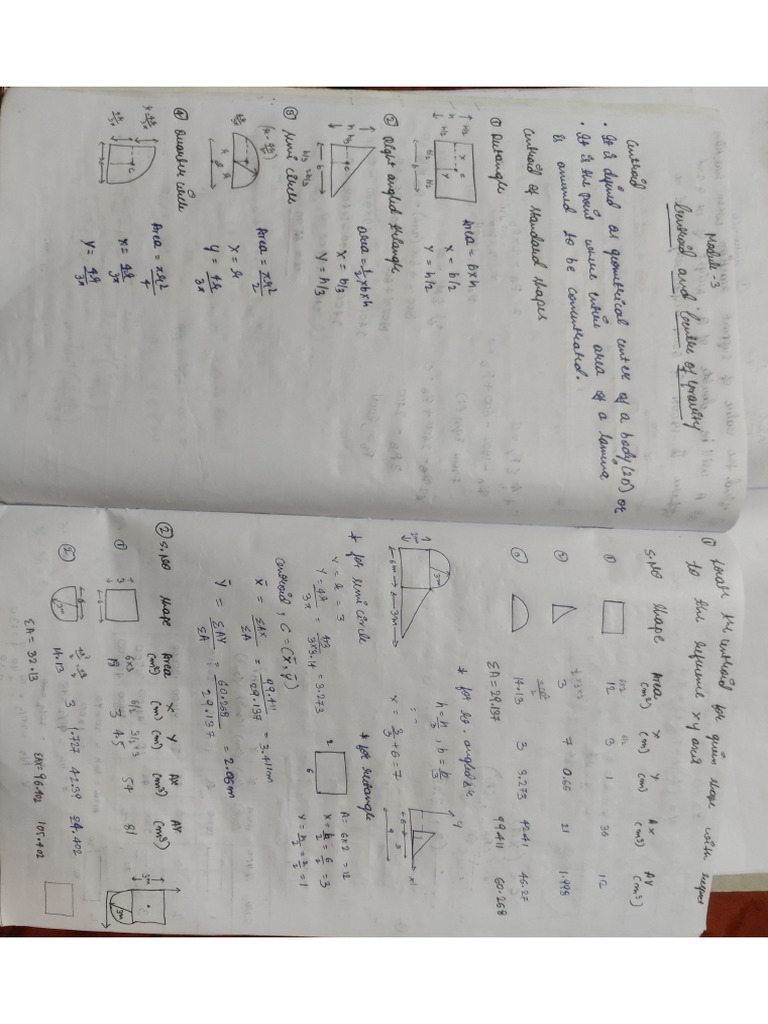 Module-3
Centroid and Centre of Gravity
Centroid
• It is defined as geometrical center of a body (2D) or
• It is the point where entire area of a lamina
is assumed to be concentrated.
Centroid of standard shapes
① Rectangle
Area = b×h
x = b/2
y = h/2
② Right angled triangle
area = 1/2 × b × h
x = b/3
y = h/3
③ Semi circle
Area = πr²/2
x = r
y = 4r/3π
④ Quarter circle
Area = πr²/4
x = 4r/3π
y = 4r/3π
① Locate the centroid for given shape with respect
to the reference xy axis
S.NO Shape Area (m²) X (m) Y (m) AX (m³) AY (m³)
① 12 3 1 36 12
② 3 7 0.66 21 1.998
③ 14.13 3 3.273 42.41 46.27
ΣA = 29.137 99.411 60.268
* for rt. angled
h = h/3, b = b/3
x = 3/3 + 6 = 7
* for rectangle
A = 6×2 = 12
x = b/2 = 6/2 = 3
y = h/2 = 2/2 = 1
* for semi circle
x = r = 3
Centroid, C = (x̄, ȳ)
x̄ = ΣAX/ΣA = 99.411/29.137 = 3.411m
ȳ = ΣAY/ΣA = 60.268/29.137 = 2.06m
② S.NO Shape Area (m²) X (m) Y (m) AX (m³) AY (m³)
① 3 4.5 54 81
② 14.13 3 1.727 42.39 24.402
ΣA = 32.13 ΣAX = 96.402 105.402